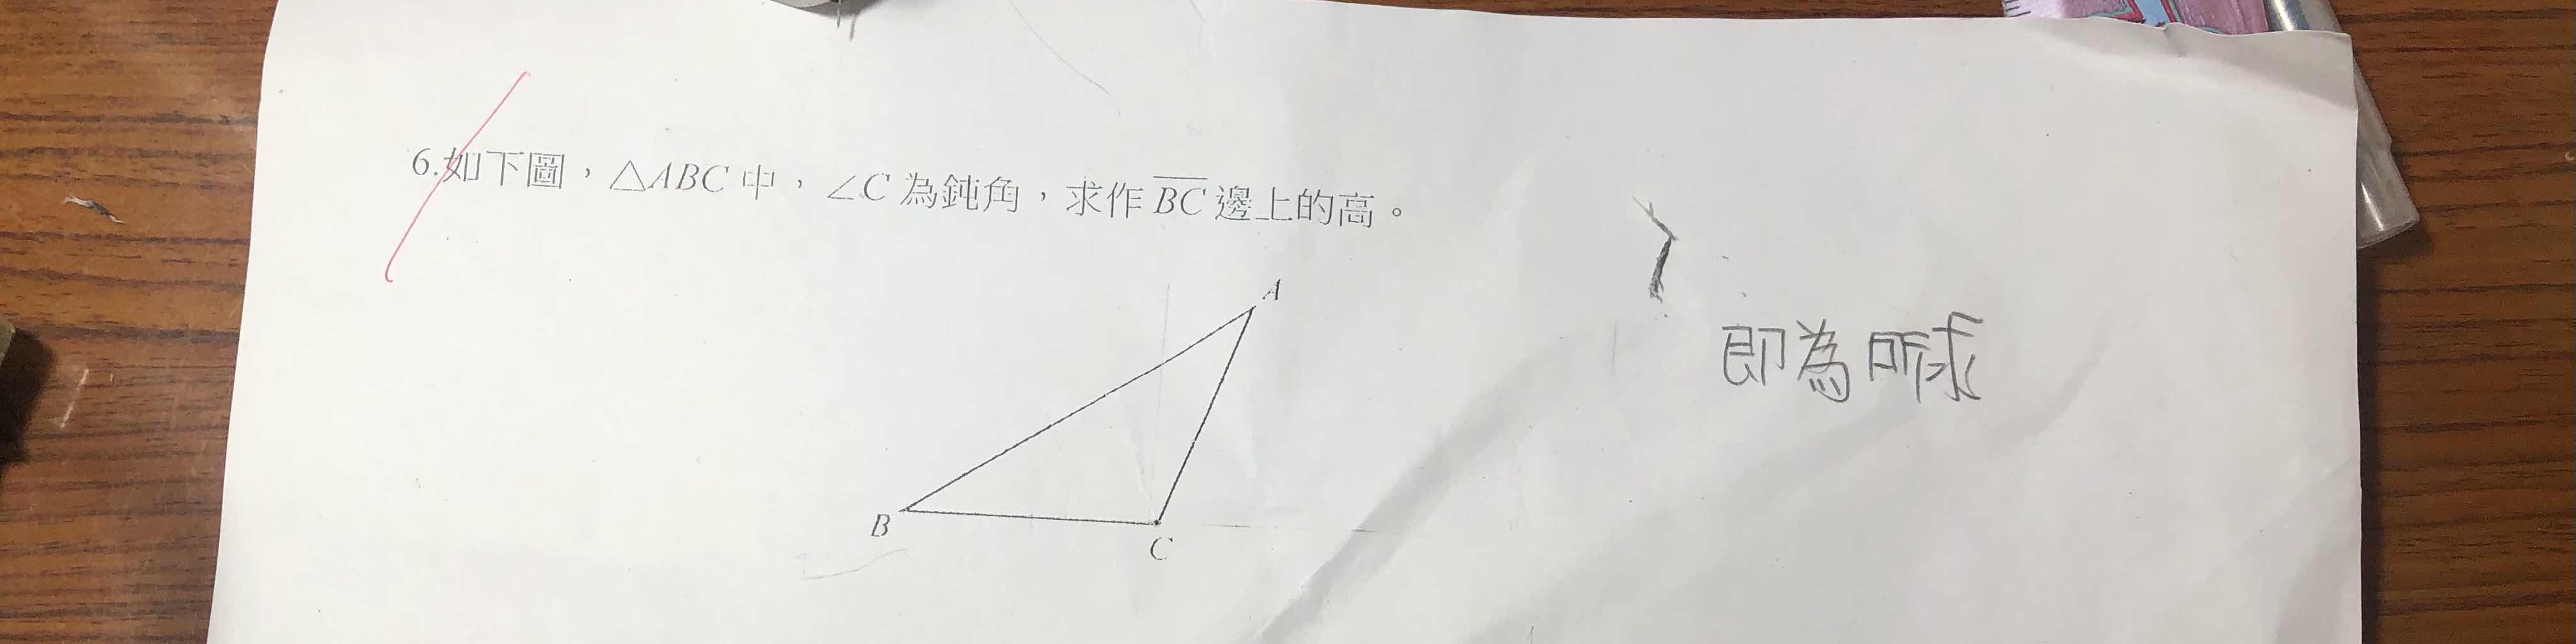 6.如下圖，△ABC中，∠C為鈍角，求作BC邊上的高。
A
即為所求
B
C